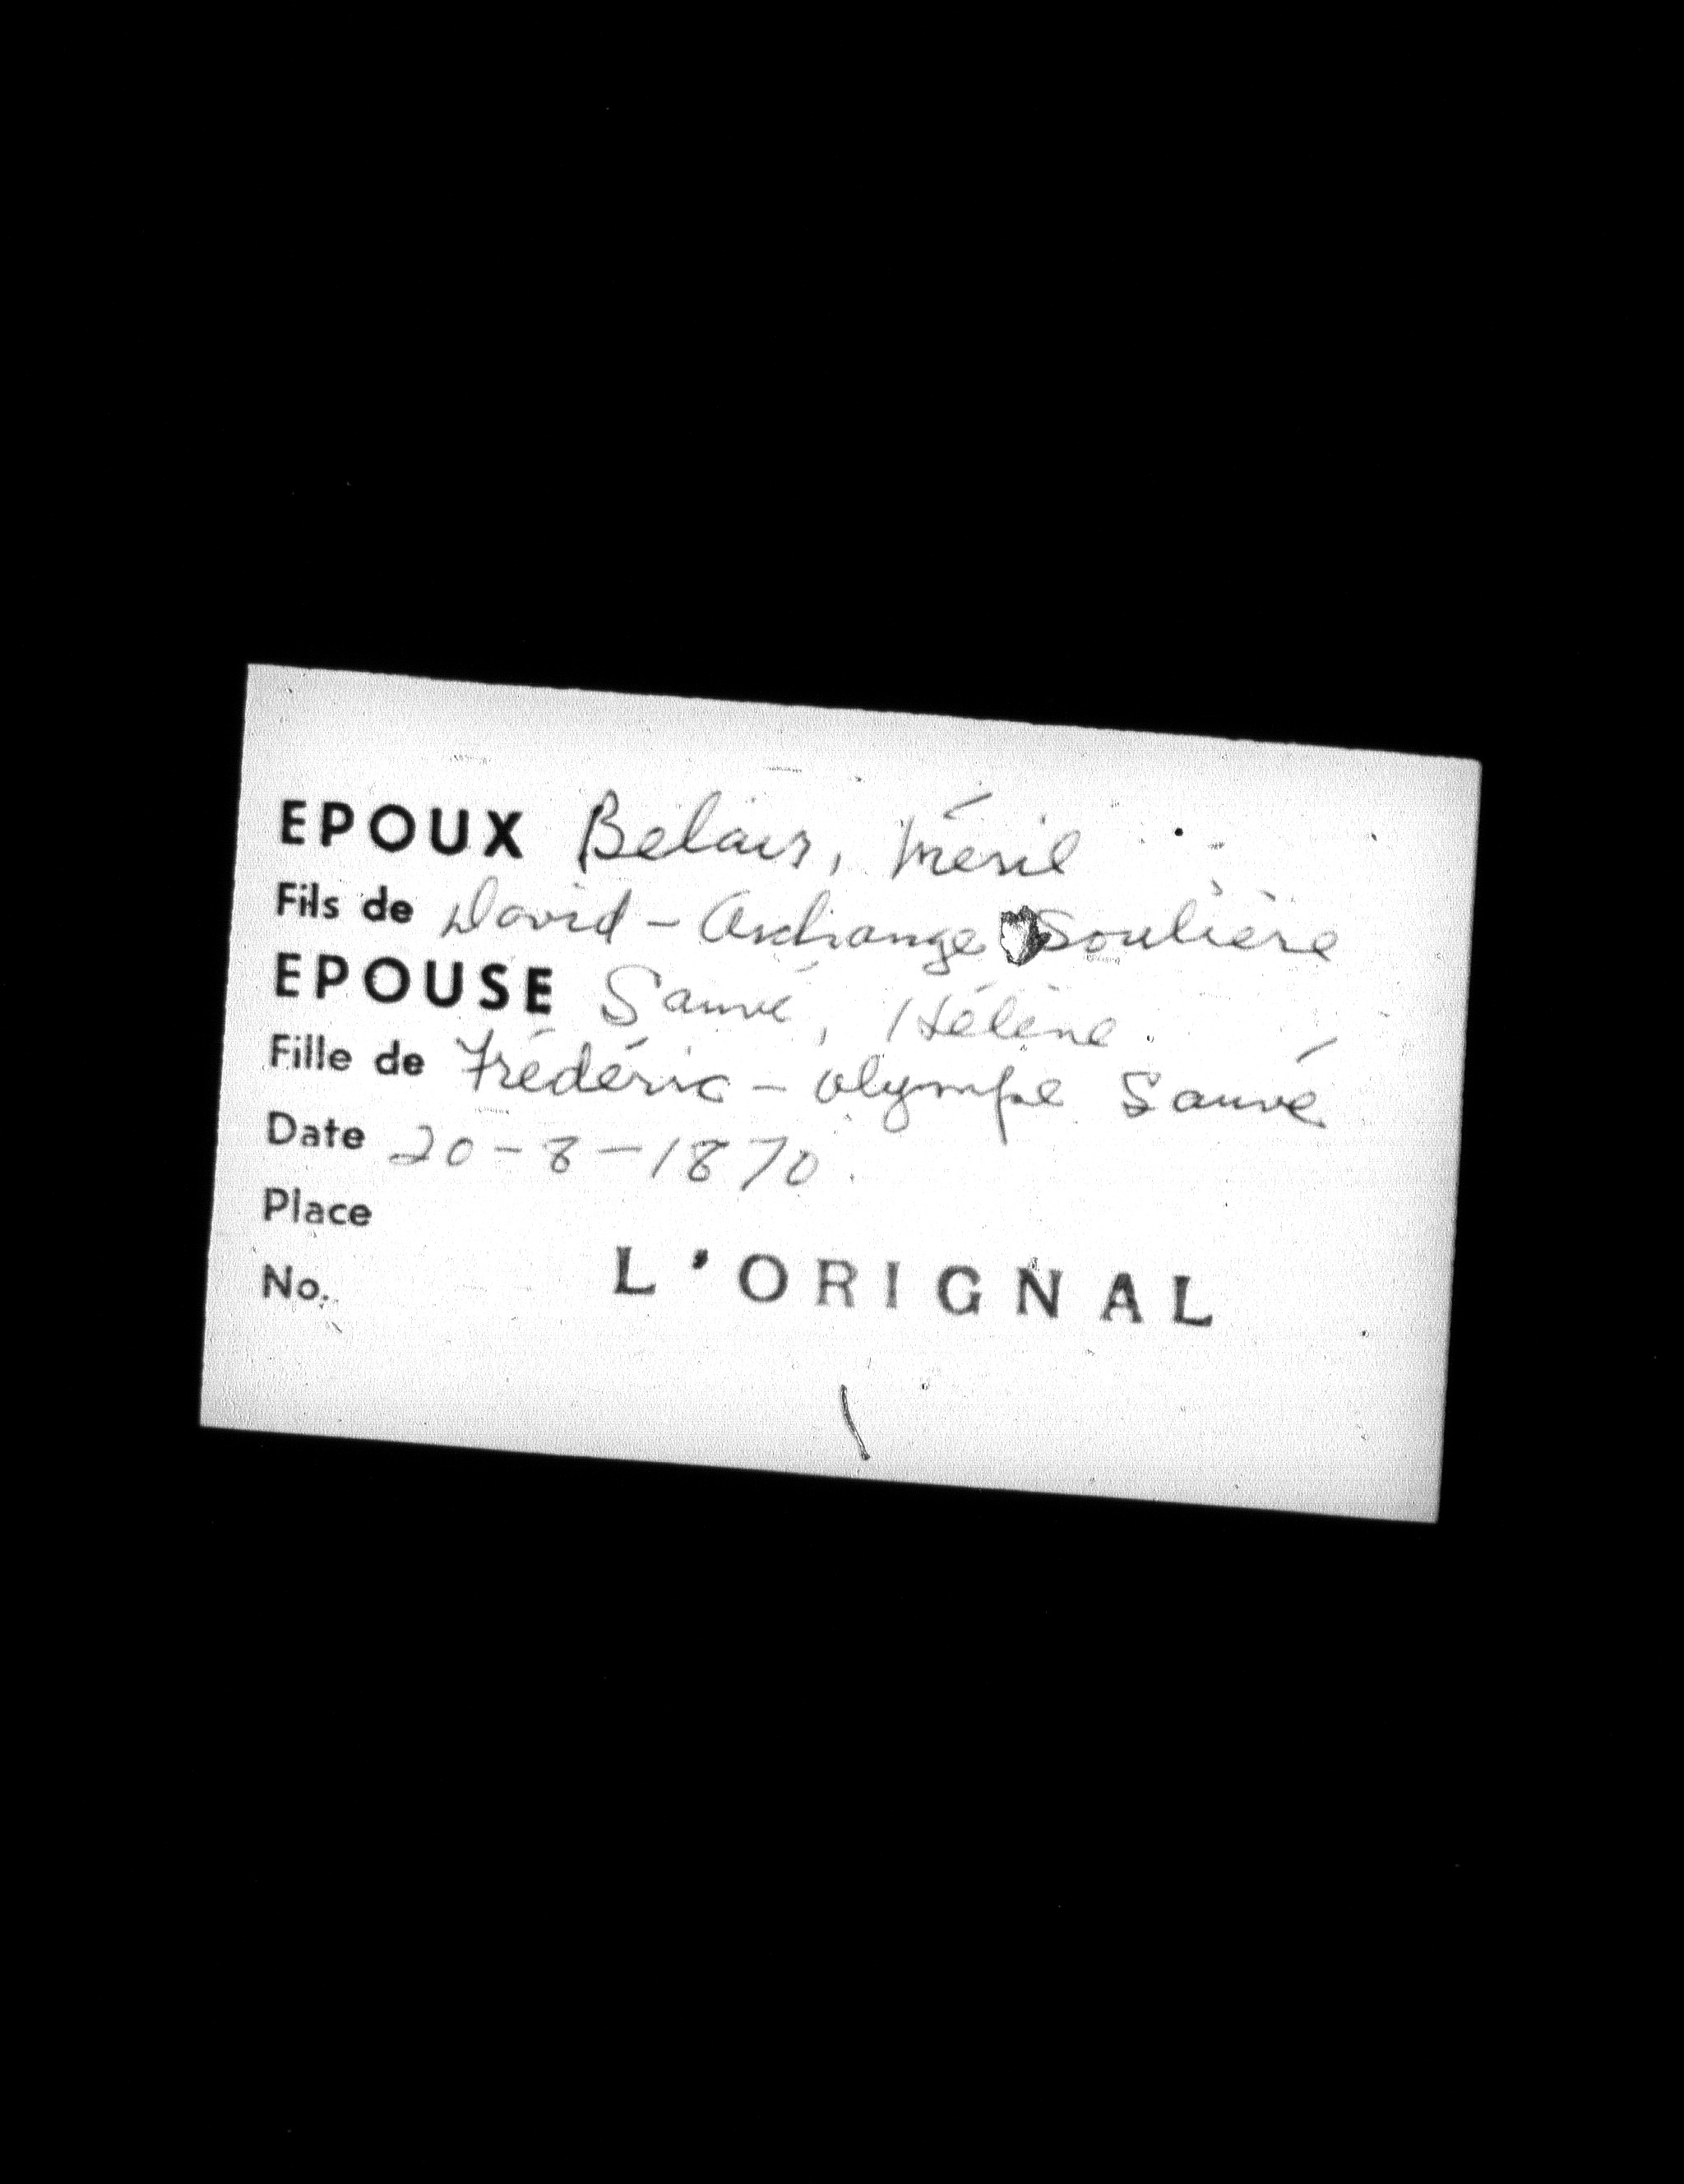 EPOUX Belair, Méril
Fils de David - Archange Soulière
EPOUSE Sauvé, Hélène
Fille de Frédéric - Olympe Sauvé
Date 20-8-1870
Place
No. L'ORIGNAL